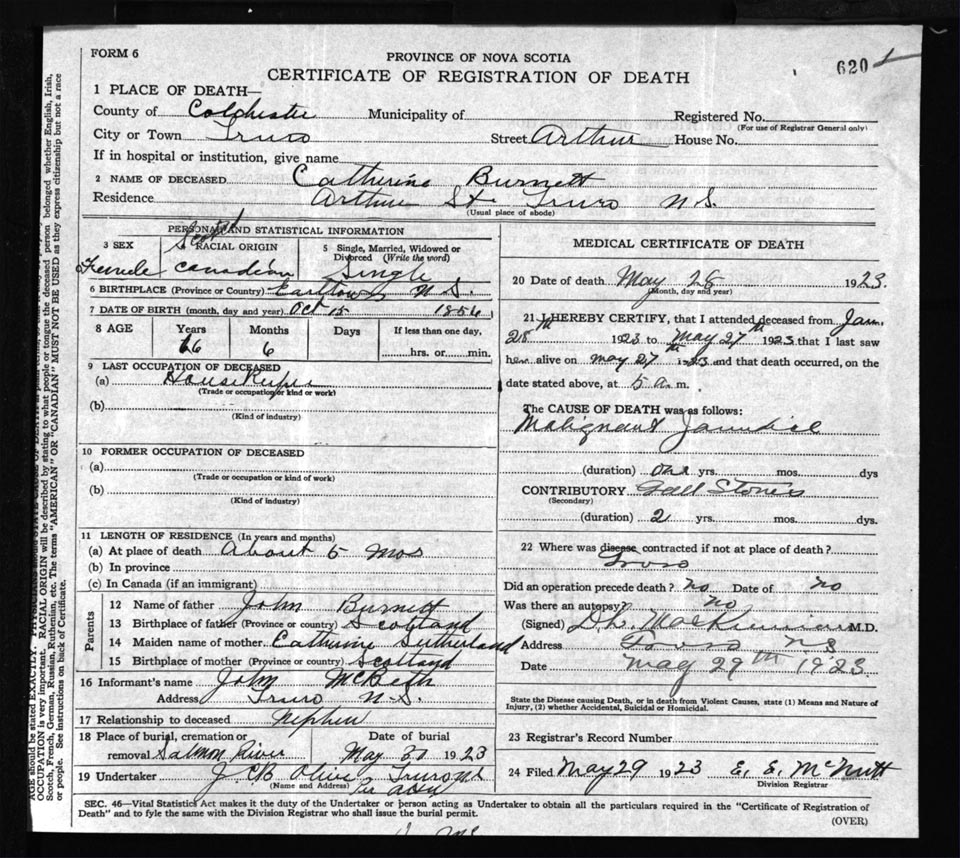 FORM 6
PROVINCE OF NOVA SCOTIA
620
CERTIFICATE OF REGISTRATION OF DEATH
1 PLACE OF DEATH—
County of Colchester Municipality of Registered No.
(For use of Registrar General only)
City or Town Truro Street Arthur House No.
If in hospital or institution, give name
2 NAME OF DECEASED Catherine Burnett
Residence Arthur St Truro N.S.
(Usual place of abode)
PERSONAL AND STATISTICAL INFORMATION
3 SEX
Female
RACIAL ORIGIN
Scotch
Canadian
5 Single, Married, Widowed or
Divorced (Write the word)
Single
6 BIRTHPLACE (Province or Country) Earltown N.S.
7 DATE OF BIRTH (month, day and year) Oct 15 1856
8 AGE Years Months Days If less than one day,
66 6 hrs. or min.
9 LAST OCCUPATION OF DECEASED
(a) Housekeeper
(Trade or occupation or kind or work)
(b)
(Kind of industry)
10 FORMER OCCUPATION OF DECEASED
(a)
(Trade or occupation or kind of work)
(b)
(Kind of industry)
11 LENGTH OF RESIDENCE (In years and months)
(a) At place of death About 5 Mos
(b) In province
(c) In Canada (if an immigrant)
Parents
12 Name of father John Burnett
13 Birthplace of father (Province or country) Scotland
14 Maiden name of mother Catherine Sutherland
15 Birthplace of mother (Province or country) Scotland
16 Informant's name John McBeth
Address Truro N.S.
17 Relationship to deceased Nephew
18 Place of burial, cremation or Date of burial
removal Salmon River May 31 1923
19 Undertaker J C B Olive Truro N.S.
(Name and Address)
MEDICAL CERTIFICATE OF DEATH
20 Date of death May 28 1923.
(Month, day and year)
21 I HEREBY CERTIFY, that I attended deceased from Jan.
28th 1923 to May 27th 1923 that I last saw
her alive on May 27th 1923 and that death occurred, on the
date stated above, at 5 a.m.
The CAUSE OF DEATH was as follows:
Malignant Jaundice
(duration) one yrs. mos. dys
CONTRIBUTORY Gall Stones
(Secondary)
(duration) 2 yrs. mos. dys.
22 Where was disease contracted if not at place of death?
Truro
Did an operation precede death? no Date of no
Was there an autopsy? no
(Signed) D.L. MacKinnon M.D.
Address Truro N.S
Date May 29th 1923
State the Disease causing Death, or in death from Violent Causes, state (1) Means and Nature of
Injury, (2) whether Accidental, Suicidal or Homicidal.
23 Registrar's Record Number
24 Filed May 29 1923 E. E. McNutt
Division Registrar
SEC. 46—Vital Statistics Act makes it the duty of the Undertaker or person acting as Undertaker to obtain all the particulars required in the "Certificate of Registration of
Death" and to fyle the same with the Division Registrar who shall issue the burial permit.
(OVER)
AGE should be stated EXACTLY.
OCCUPATION is very important. RACIAL ORIGIN will be described by stating to what people or tongue the deceased person belonged whether English, Irish,
Scotch, French, German, Russian, Ruthenian, etc. The terms "AMERICAN" OR "CANADIAN" MUST NOT BE USED as they express citizenship but not a race
or people. See instructions on back of Certificate.